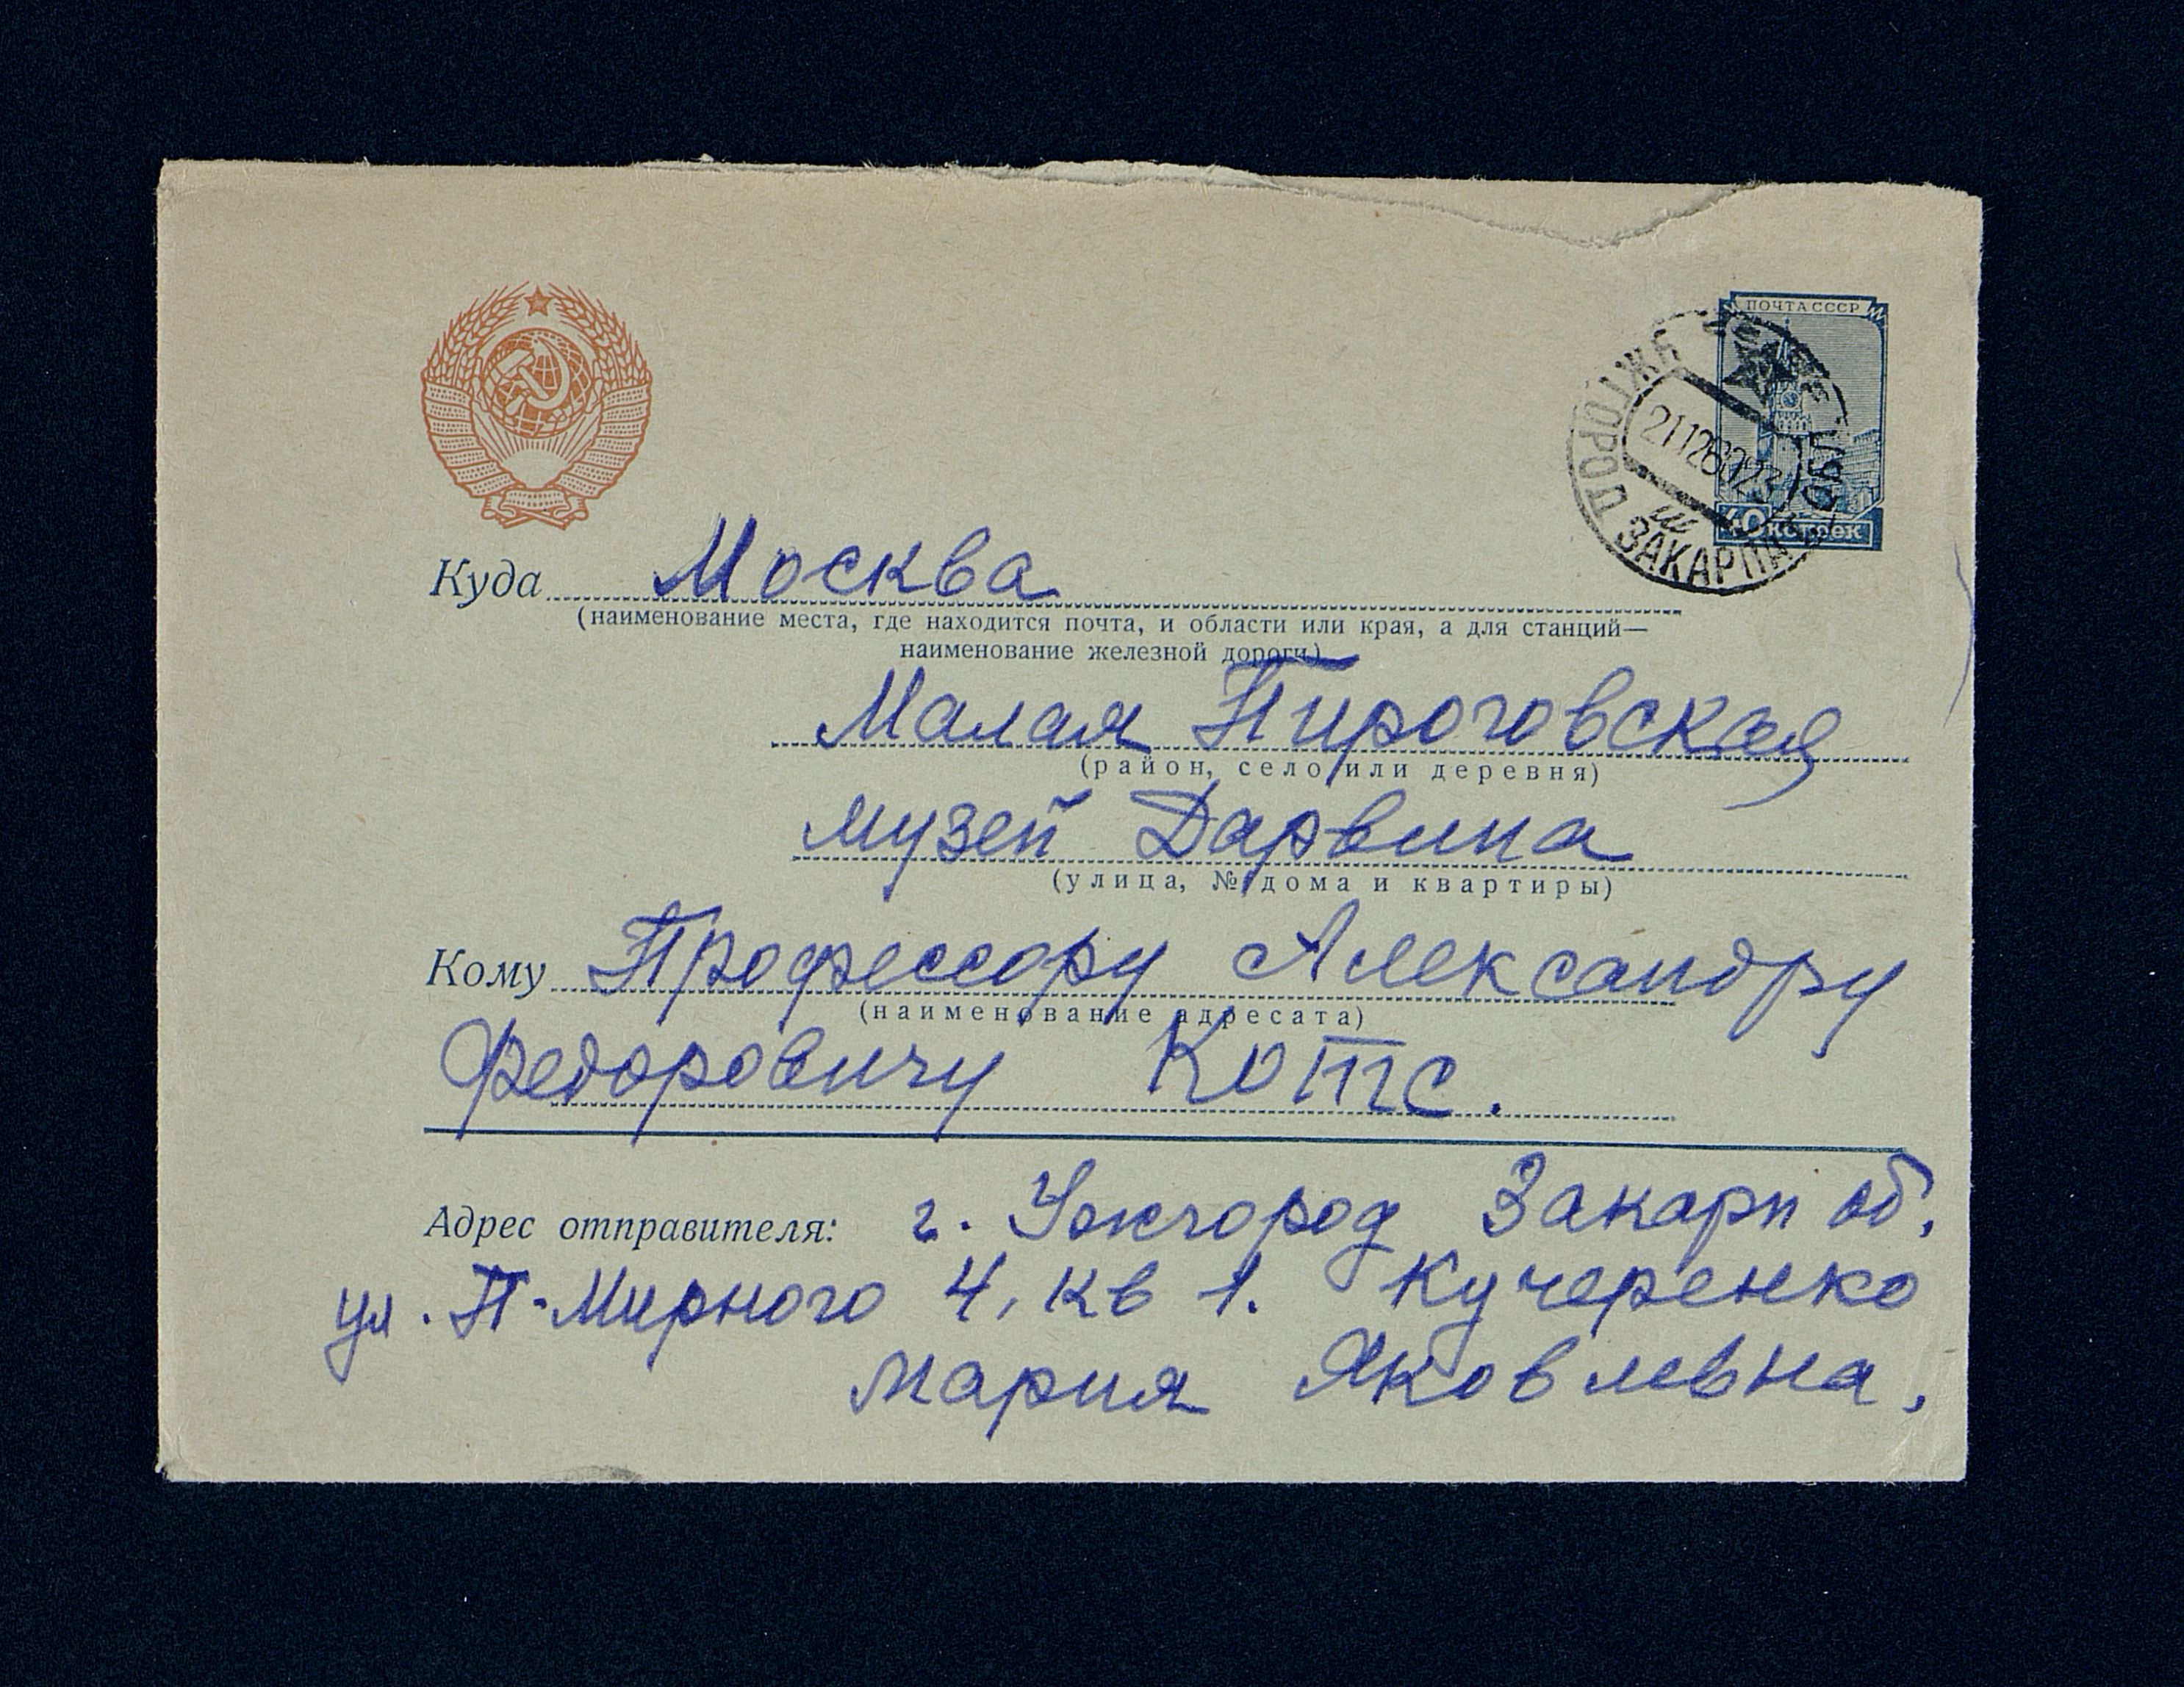 ПОЧТА СССР
УЖГОРОД
21126023
ЗАКАРПАТ. ОБЛ.
40 копеек
Куда Москва
(наименование места, где находится почта, и области или края, а для станций—
наименование железной дороги)
Малая Пироговская
(район, село или деревня)
музей Дарвина
(улица, № дома и квартиры)
Кому Профессору Александру
(наименование адресата)
Федоровичу Котс.
Адрес отправителя: г. Ужгород Закарп об.
ул. П-Мирного 4, кв 1. Кучеренко
Мария Яковлевна.